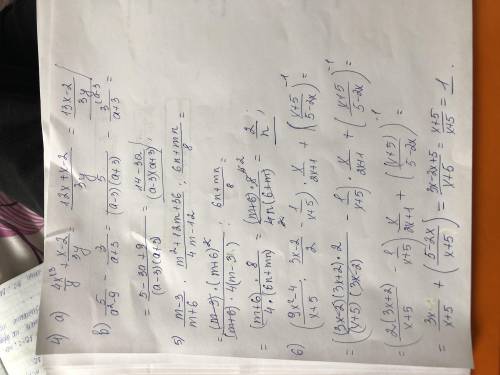 4) a) 4x^{\3}/y + x-2/3y = 12x+x-2/3y = 13x-2/3y
b) 5/a²-9 - 3/a+3 = 5/(a-3)(a+3) - 3^{\a-3}/a+3 =
= 5-3a+9/(a-3)(a+3) = 14-3a/(a-3)(a+3)
5) m-3/m+6 · m²+12m+36/4m-12 : 6n+mn/8
= (m-3)·(m+6)²/(m+6)·4(m-3) : 6n+mn/8 =
= (m+6)/4 · 8/(6n+mn) = (m+6)·8/4n(6+m) = 2/n ;
6) (9x²-4/x+5 : 3x-2/2 - 2/x+5) · x/2x+1 + (x+5/5-2x)^{-1} =
= ((3x-2)(3x+2)·2/(x+5)(3x-2) - 2/x+5) · x/2x+1 + (x+5/5-2x)^{-1}
= (2(3x+2)/x+5 - 2/x+5) x/2x+1 + (x+5/5-2x)^{-1} =
= 3x/x+5 + (5-2x/x+5) = 3x-2x+5/x+5 = x+5/x+5 = 1.